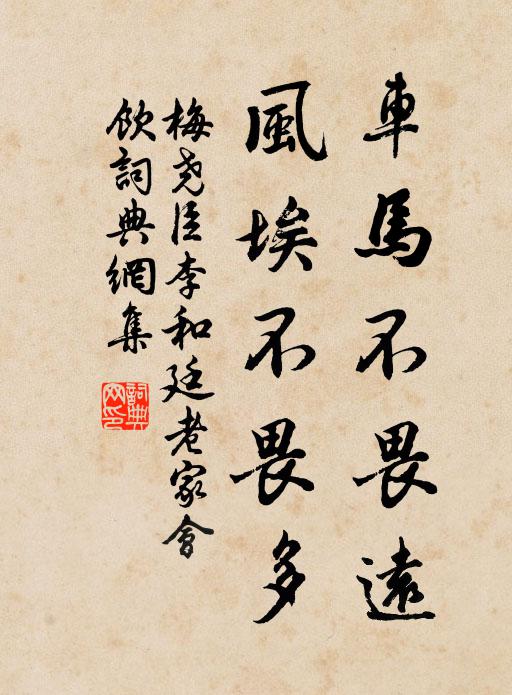 車馬不畏遠
風埃不畏多
梅尧臣李和廷老家會
飲詞典網集
詞典
网印